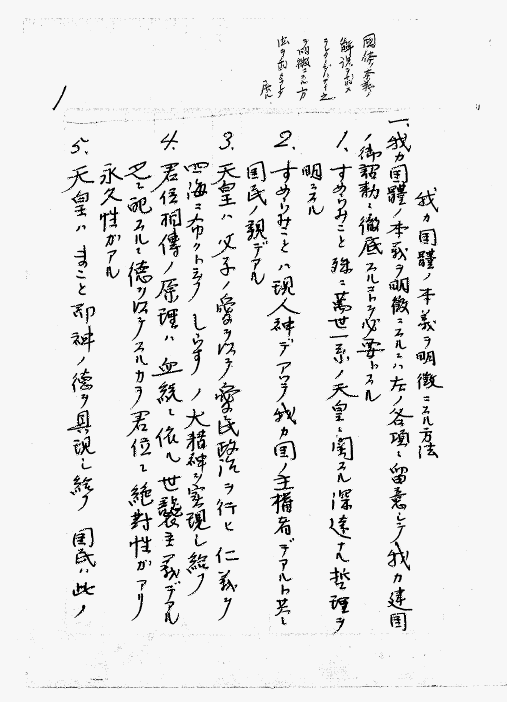 國体ノ本義ノ
解説ヲ加ヘ
ヲ明徴ニスル方
法ヲ
我カ国體ノ本義ヲ明徴ニスル方法
一、我カ国體ノ本義ヲ明徴ニスルニハ左ノ各項ニ留意シテ我カ建国
ノ御詔勅ニ徹底スルコトヲ必要トスル
1、すめらみこと殊ニ萬世一系ノ天皇ニ関スル深遠ナル哲理ヲ
明ニスル
2、すめらみことハ現人神デアツテ我カ国ノ主権者デアルト共ニ
国民ノ親デアル
3、天皇ハ父子ノ愛ヲ以テ愛民政治ヲ行ヒ仁義ヲ
四海ニ布クトシテしらすノ大精神ヲ実現シ給フ
4、君位相傳ノ原理ハ血統ニ依ル世襲主義デアル
之ニ配スルニ徳ヲ以テスルカラ君位ニ絶對性ガアリ
永久性ガアル
5、天皇ハまこと即神ノ徳ヲ具現シ給フ 国民ハ此ノ
1